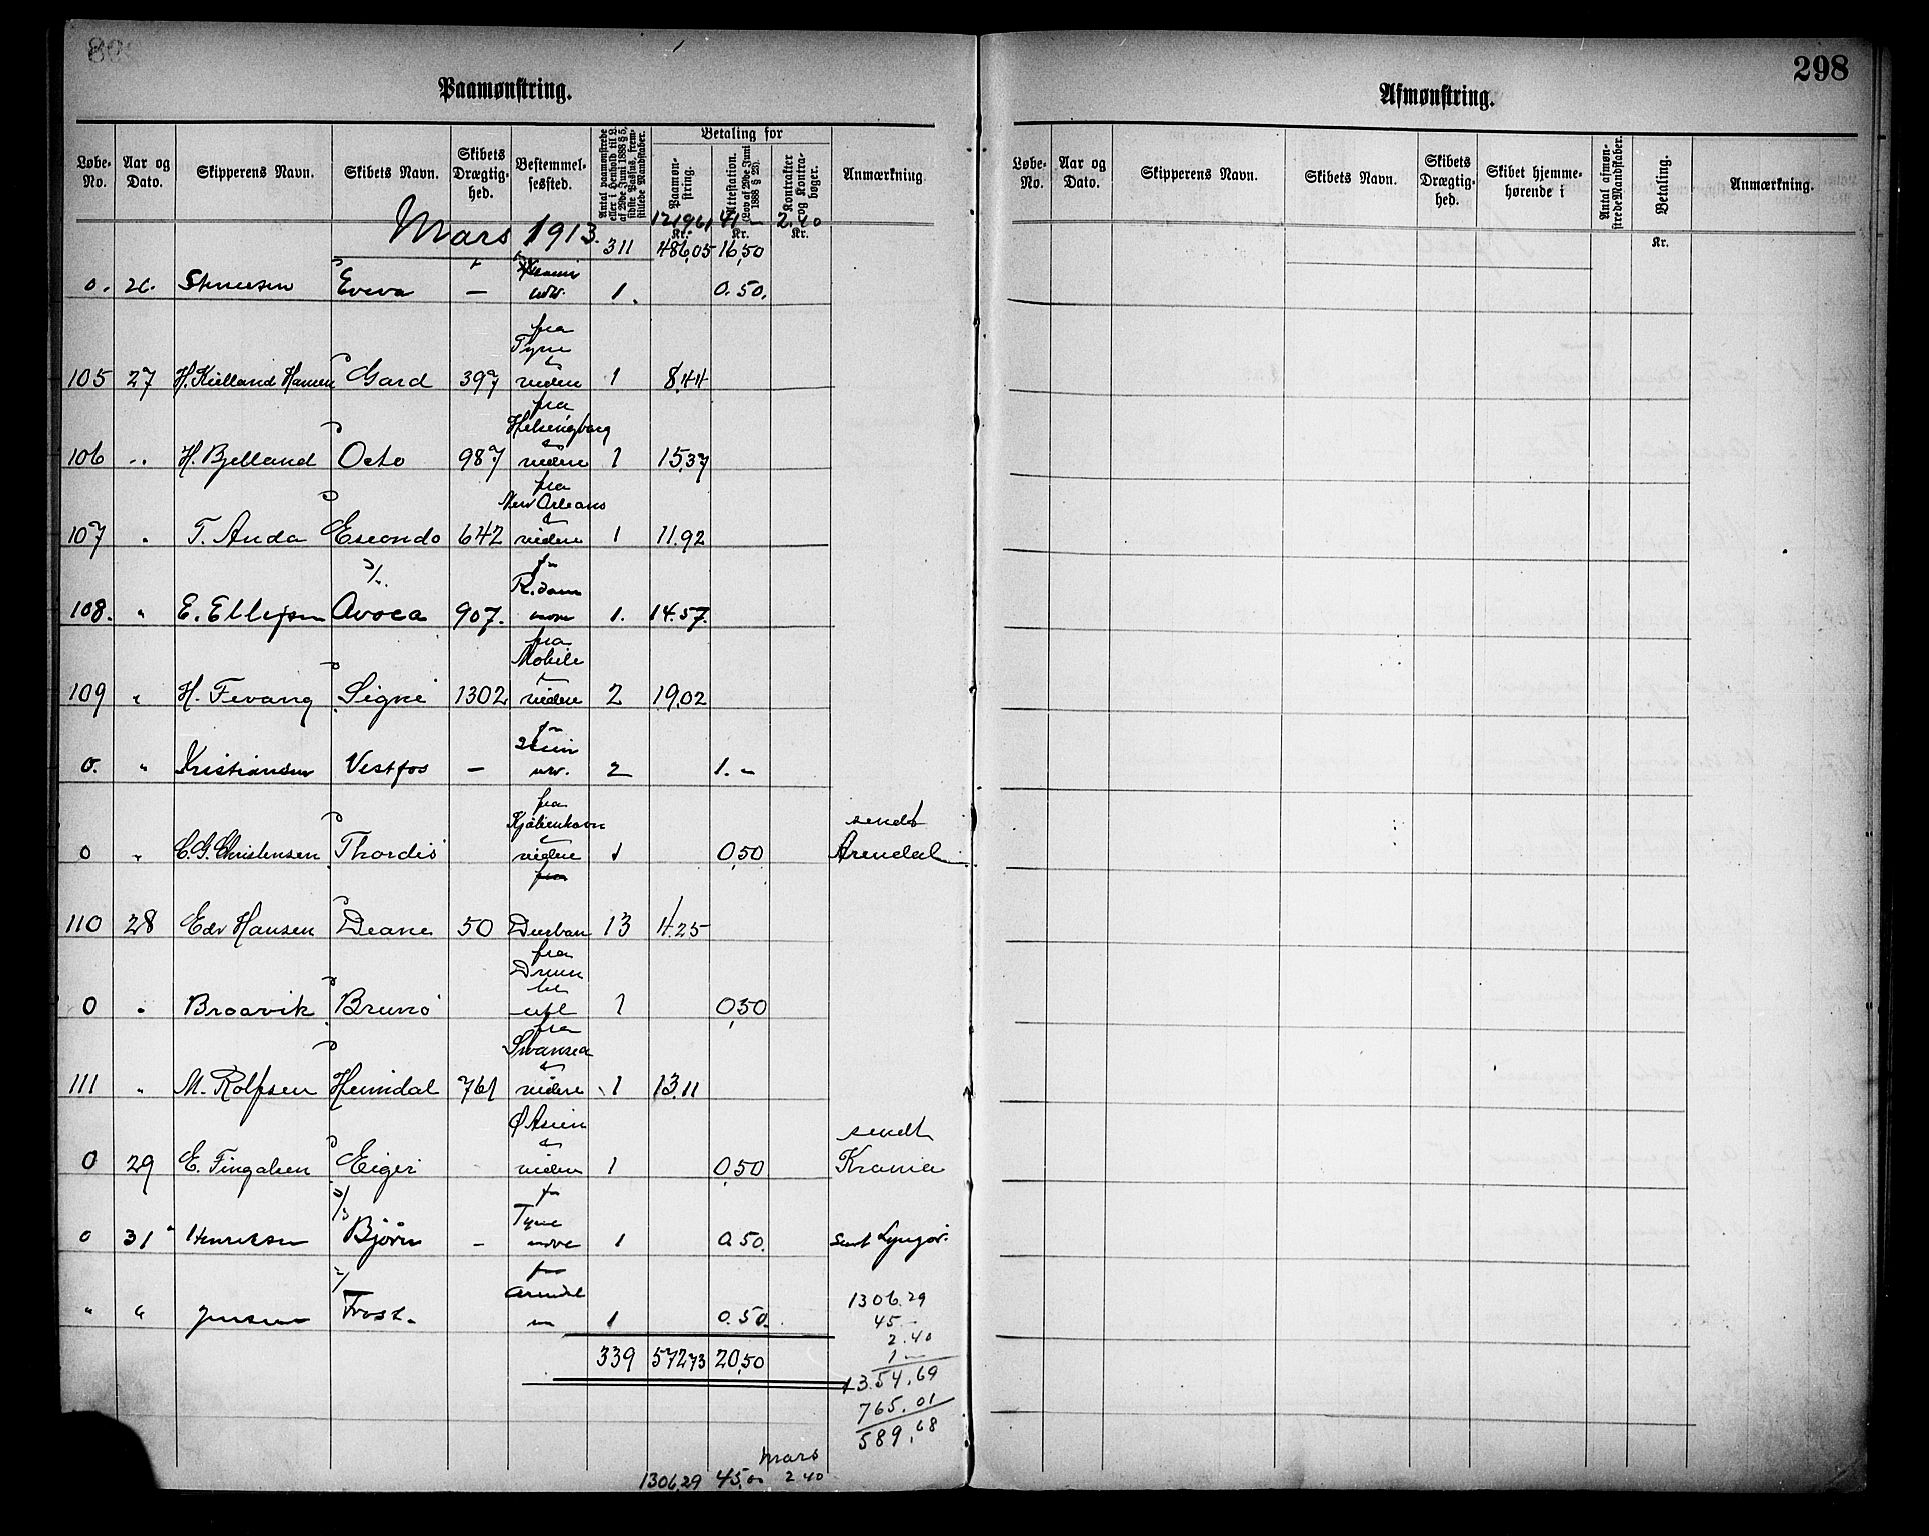 298
Paamønstring.
Løbe-No.
Aar og Dato.
Skipperens Navn.
Skibets Navn.
Skibets Drægtig-hed.
Bestemmel-sessted.
Antal paamønstrede eller i Henhold til L. af 29de Juni 1888 § 5, sidste Passus, frem-stillede Mandskaber.
Betaling for
Paamøn-string.
Attestation. (Lov af 29de Juni 1888 § 25).
Kontrakter og Kontra-bøger.
Anmærkning.
Mars 1913. 1219,61 41 - 2.40
Kr. Kr. Kr.
311 486,05 16,50
0. 26. Eveva — 1. 0.50.
fra
Tyne
105 27 H. Kielland Hansen Gard 397 videre 1 8,44
fra
Helsingborg
106 " H. Bjelland Octo 987 videre 1 15,37
fra
New Orleans
107 " T. Anda Escondo 642 videre 1 11.92
fra
R.dam
108. " E. Ellefsen Avoca 907. 1. 14.57.
fra
Mobile
109 " H. Fevang Signe 1302 videre 2 19,02
0. " Kristiansen Vestfos — 2 1.-
fra
Kjøbenhavn sendt
0 " C.G. Christensen Thordis videre 1 0,50 Arendal
fra
110 28 Edv Hansen Diane 50 Durban 13 4.25
fra
Drmn
til
0 " Braavik Bruno utl 1 0,50
fra
Swansea
111 " M. Rolfsen Heimdal 761 videre 1 13.11
Ø Asien sendt
0 29 E. Fingalsen Eiger videre 1 0,50 Krania
fra
Tyne
0 31 Henriksen Bjørn - 1 0.50. sent Lyngør.
fra
Arendal
" " Jensen Frost. 1 0.50.
339 572,73 20,50
1306.29
45.-
2.40
1 -
1354,69
765.01
589,68
Mars
1306,29 45,00 2 40
298
Afmønstring.
Løbe-No.
Aar og Dato.
Skipperens Navn.
Skibets Navn.
Skibets Drægtig-hed.
Skibet hjemme-hørende i
Antal afmøn-strede Mandskaber.
Betaling.
Anmærkning.
Kr.